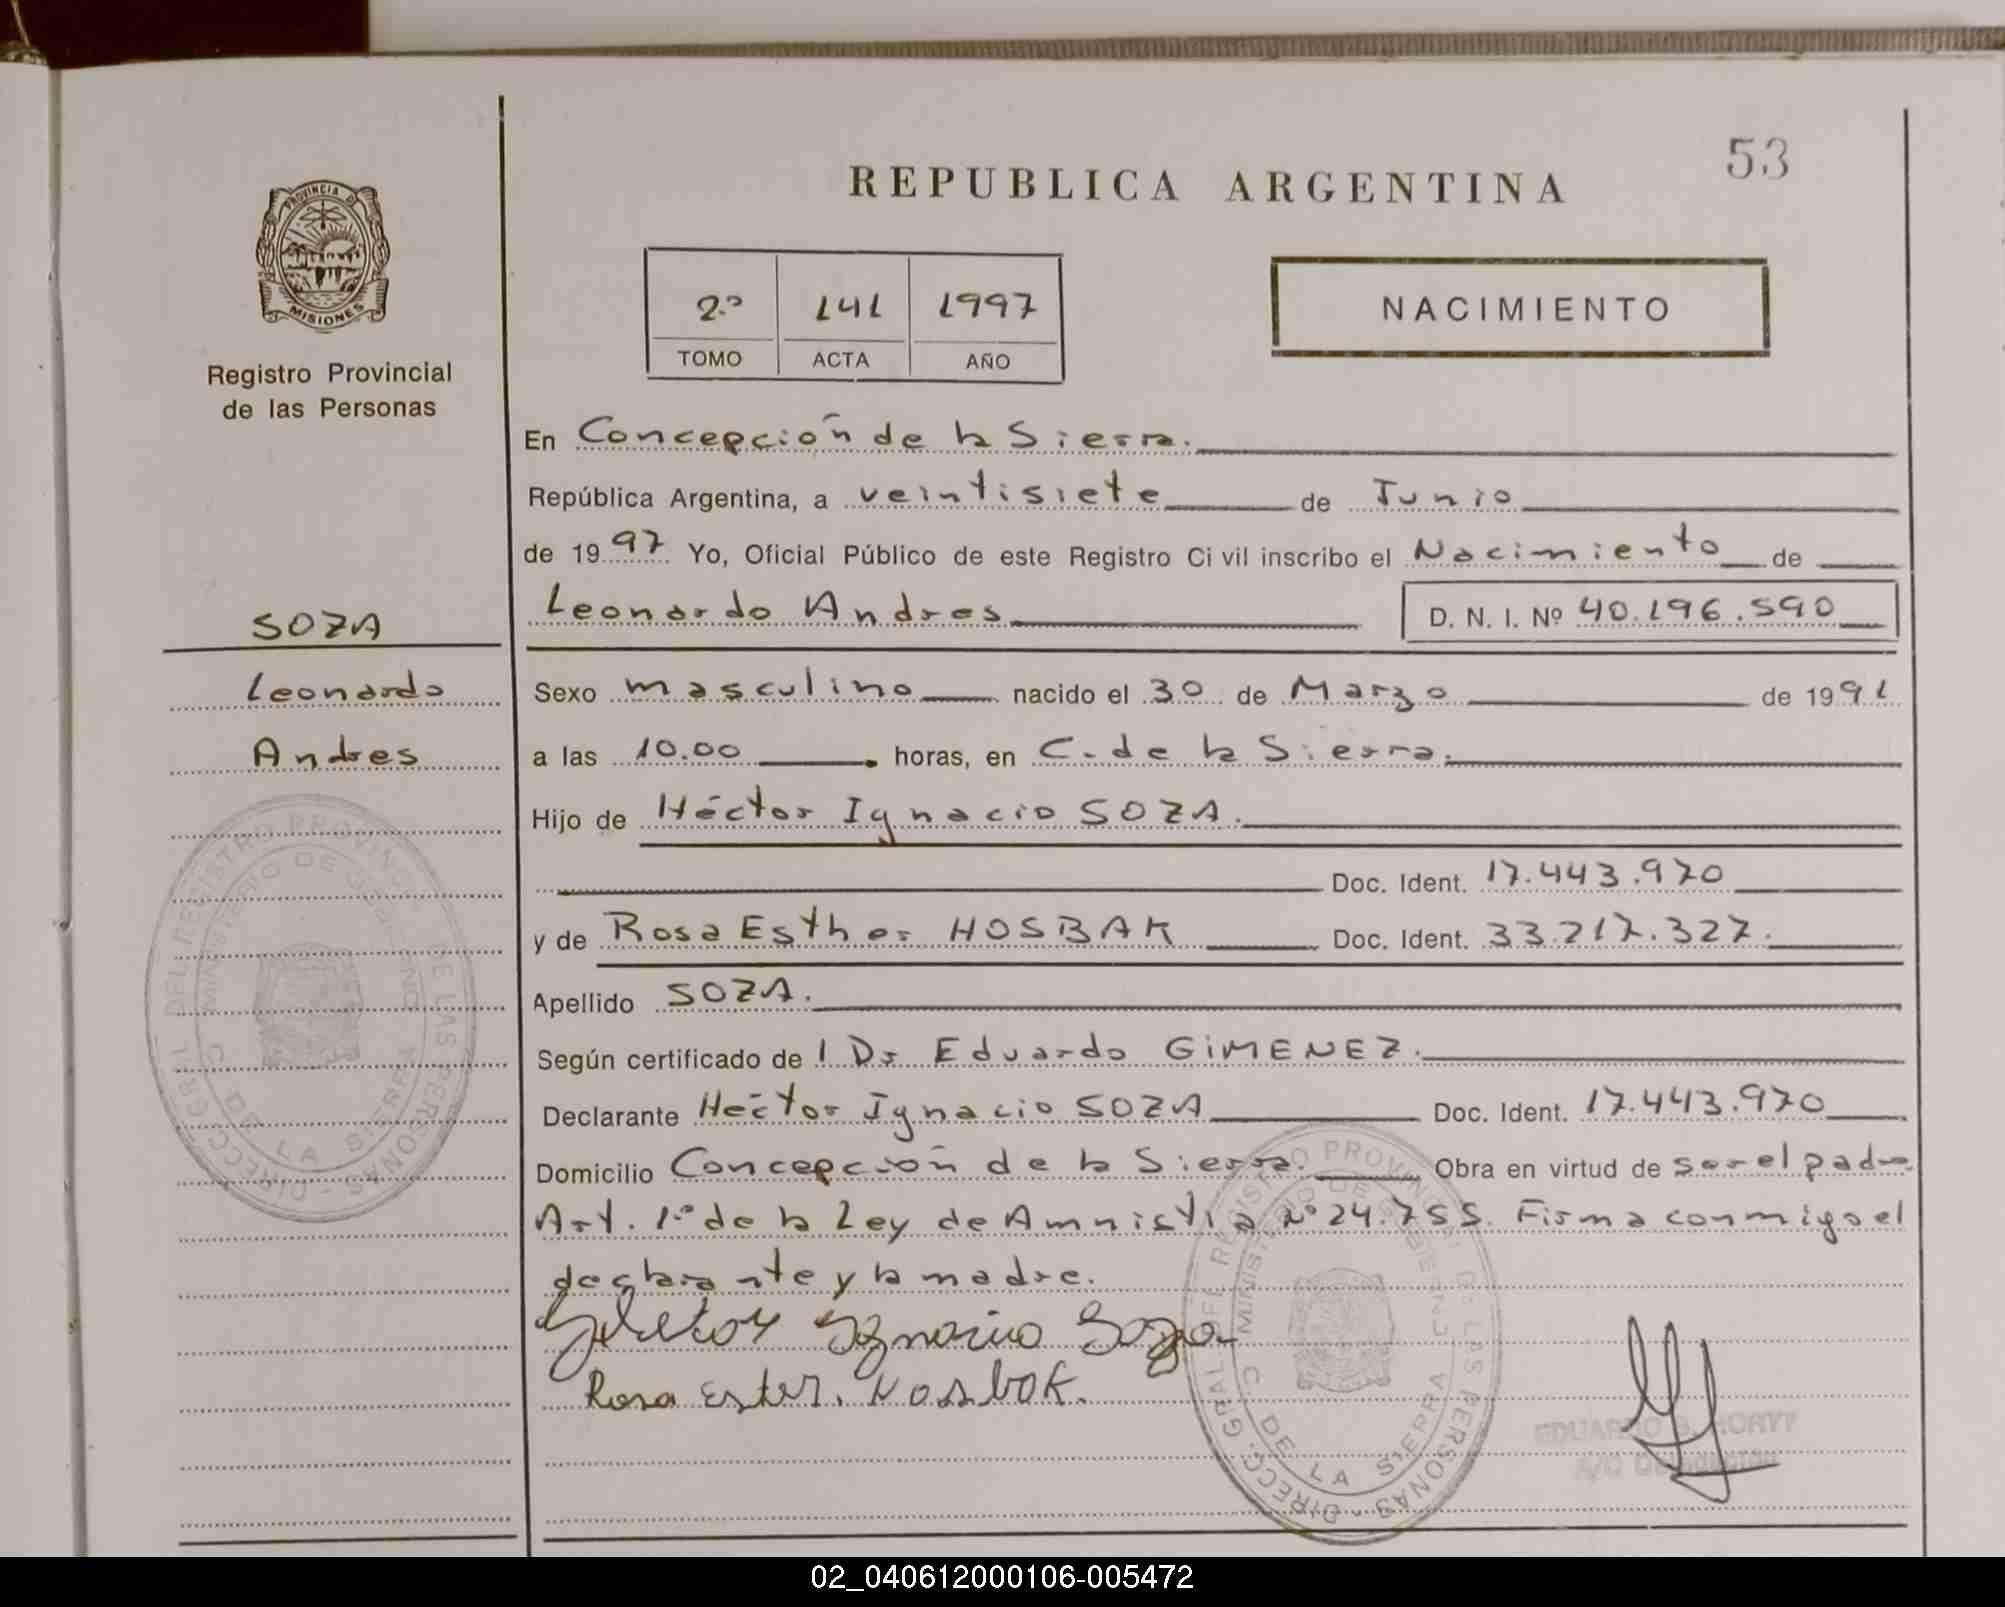 53
REPUBLICA ARGENTINA
PROVINCIA DE
MISIONES
Registro Provincial
de las Personas
2.º 141 1997
TOMO ACTA AÑO
NACIMIENTO
En Concepción de la Sierra.
República Argentina, a veintisiete de Junio
de 1997 Yo, Oficial Público de este Registro Civil inscribo el Nacimiento de
Leonardo Andres D. N. I. Nº 40.196.590
SOZA
Leonardo
Andres
Sexo masculino nacido el 30 de Marzo de 1991
a las 10.00 horas, en C. de la Sierra.
Hijo de Héctor Ignacio SOZA.
Doc. Ident. 17.443.970
y de Rosa Esther HOSBAK Doc. Ident. 33.217.327.
Apellido SOZA.
Según certificado del Dr Eduardo GIMENEZ.
Declarante Héctor Ignacio SOZA Doc. Ident. 17.443.970
Domicilio Concepción de la Sierra. Obra en virtud de ser el padre
Art. 1º de la Ley de Amnistia Nº 24.755. Firma conmigo el
declarante y la madre.
Hector Ignacio Soza
Rosa Ester. Hosbok.
DIRECC. GRAL DEL REGISTRO PROVINCIAL DE LAS PERSONAS
MINISTERIO DE GOBIERNO
C. DE LA SIERRA
DIRECC. GRAL DEL REGISTRO PROVINCIAL DE LAS PERSONAS
MINISTERIO DE GOBIERNO
C. DE LA SIERRA
EDUARDO
02_040612000106-005472